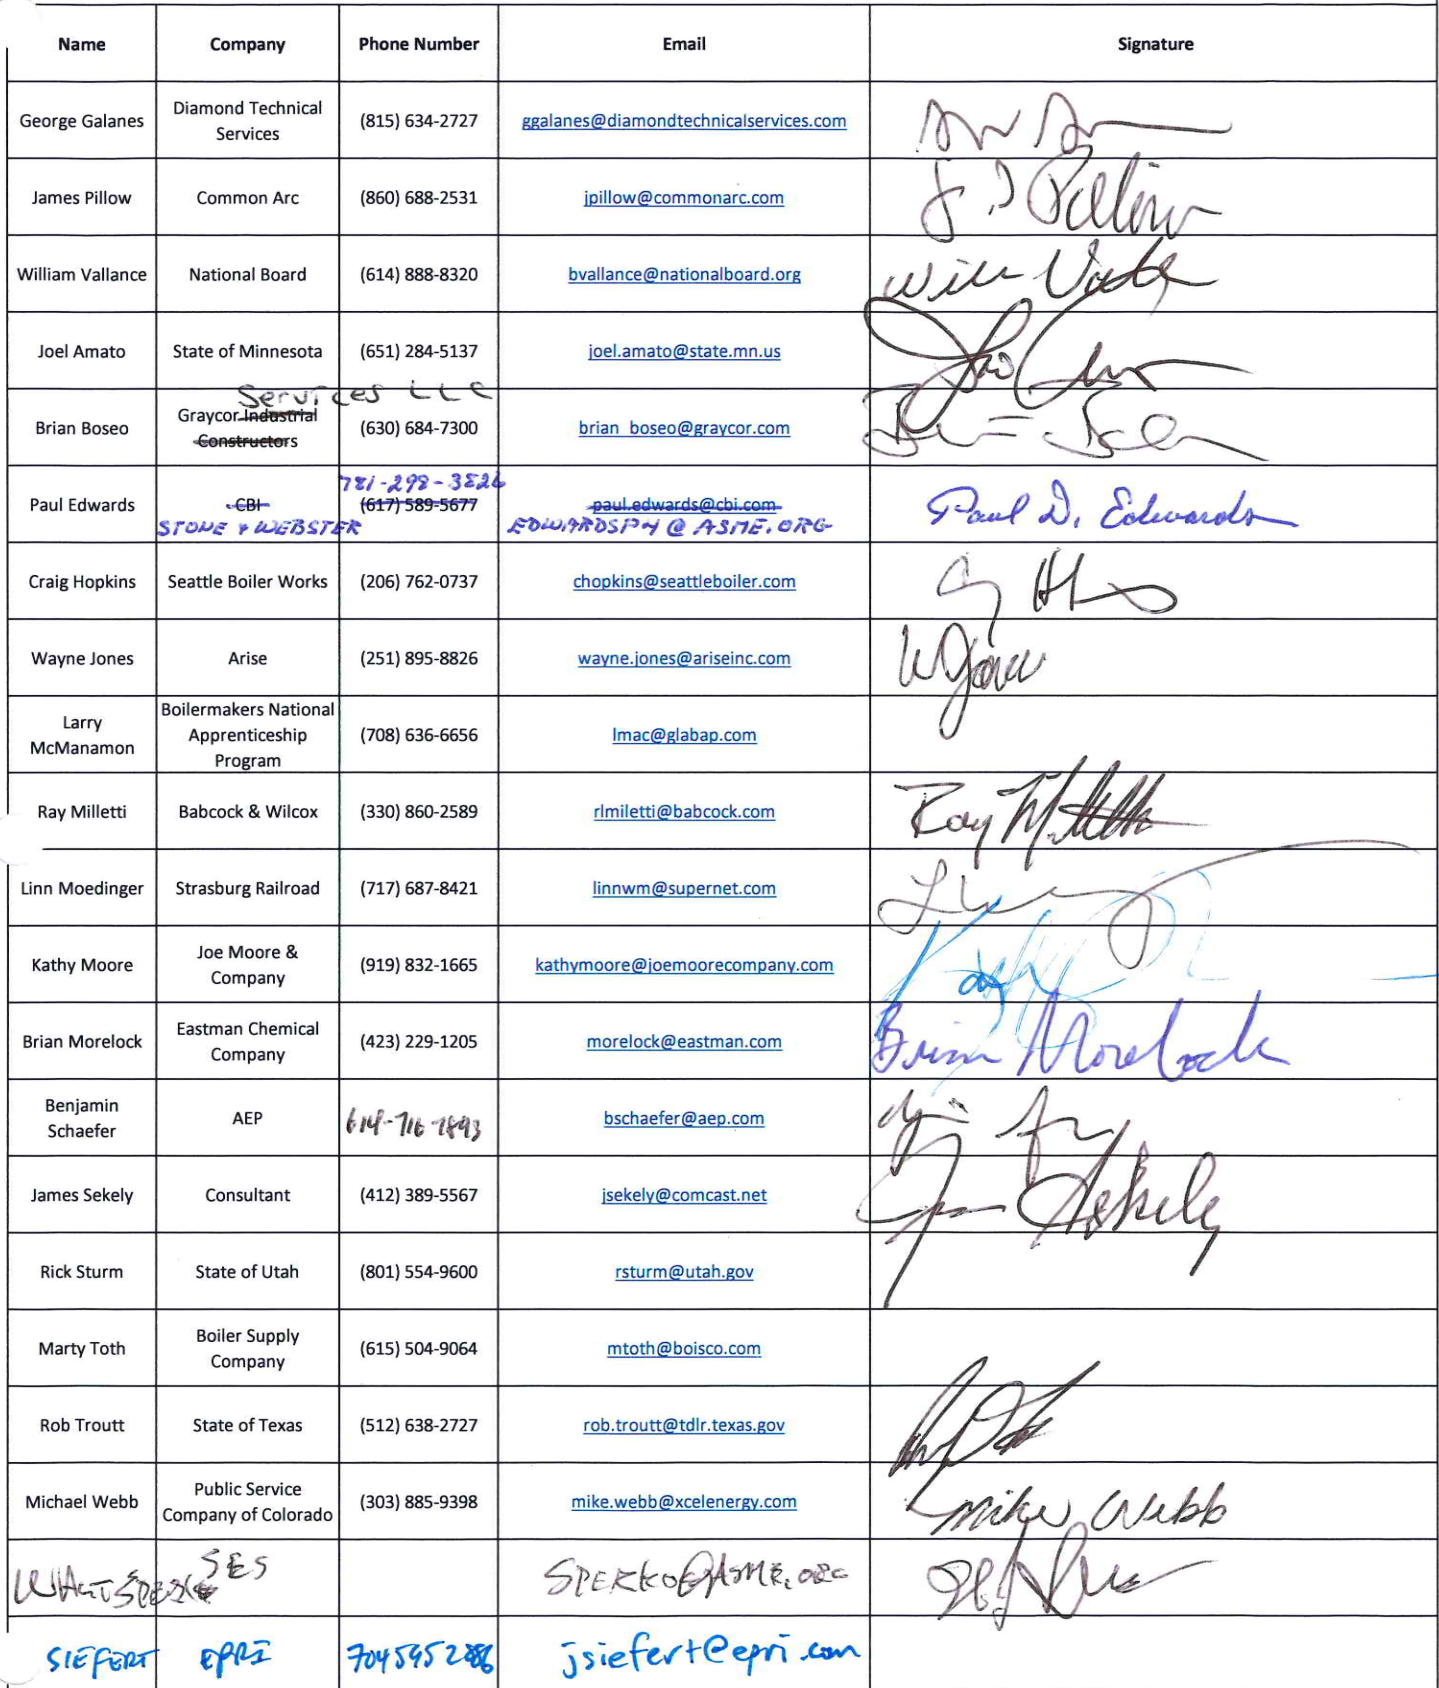 Name Company Phone Number Email Signature
George Galanes Diamond Technical Services (815) 634-2727 ggalanes@diamondtechnicalservices.com
James Pillow Common Arc (860) 688-2531 jpillow@commonarc.com J. J Pillow
William Vallance National Board (614) 888-8320 bvallance@nationalboard.org Will
Joel Amato State of Minnesota (651) 284-5137 joel.amato@state.mn.us
Services LLC
Brian Boseo Graycor Industrial Constructors (630) 684-7300 brian_boseo@graycor.com
781-298-
Paul Edwards CBI (617) 589-5677 paul.edwards@cbi.com Paul D. Edwards
STONE & WEBSTER EDWARDSP4@ASME.ORG
Craig Hopkins Seattle Boiler Works (206) 762-0737 chopkins@seattleboiler.com
Wayne Jones Arise (251) 895-8826 wayne.jones@ariseinc.com W Jones
Larry McManamon Boilermakers National Apprenticeship Program (708) 636-6656 lmac@glabap.com
Ray Milletti Babcock & Wilcox (330) 860-2589 rlmiletti@babcock.com Ray
Linn Moedinger Strasburg Railroad (717) 687-8421 linnwm@supernet.com
Kathy Moore Joe Moore & Company (919) 832-1665 kathymoore@joemoorecompany.com
Brian Morelock Eastman Chemical Company (423) 229-1205 morelock@eastman.com Brian Morelock
Benjamin Schaefer AEP 614-716-1893 bschaefer@aep.com
James Sekely Consultant (412) 389-5567 jsekely@comcast.net Sekely
Rick Sturm State of Utah (801) 554-9600 rsturm@utah.gov
Marty Toth Boiler Supply Company (615) 504-9064 mtoth@boisco.com
Rob Troutt State of Texas (512) 638-2727 rob.troutt@tdlr.texas.gov
Michael Webb Public Service Company of Colorado (303) 885-9398 mike.webb@xcelenergy.com Mike Webb
WALT SPERKO SES SPERKO@ASME.ORG
SIEFERT EPRI jsiefert@epri.com